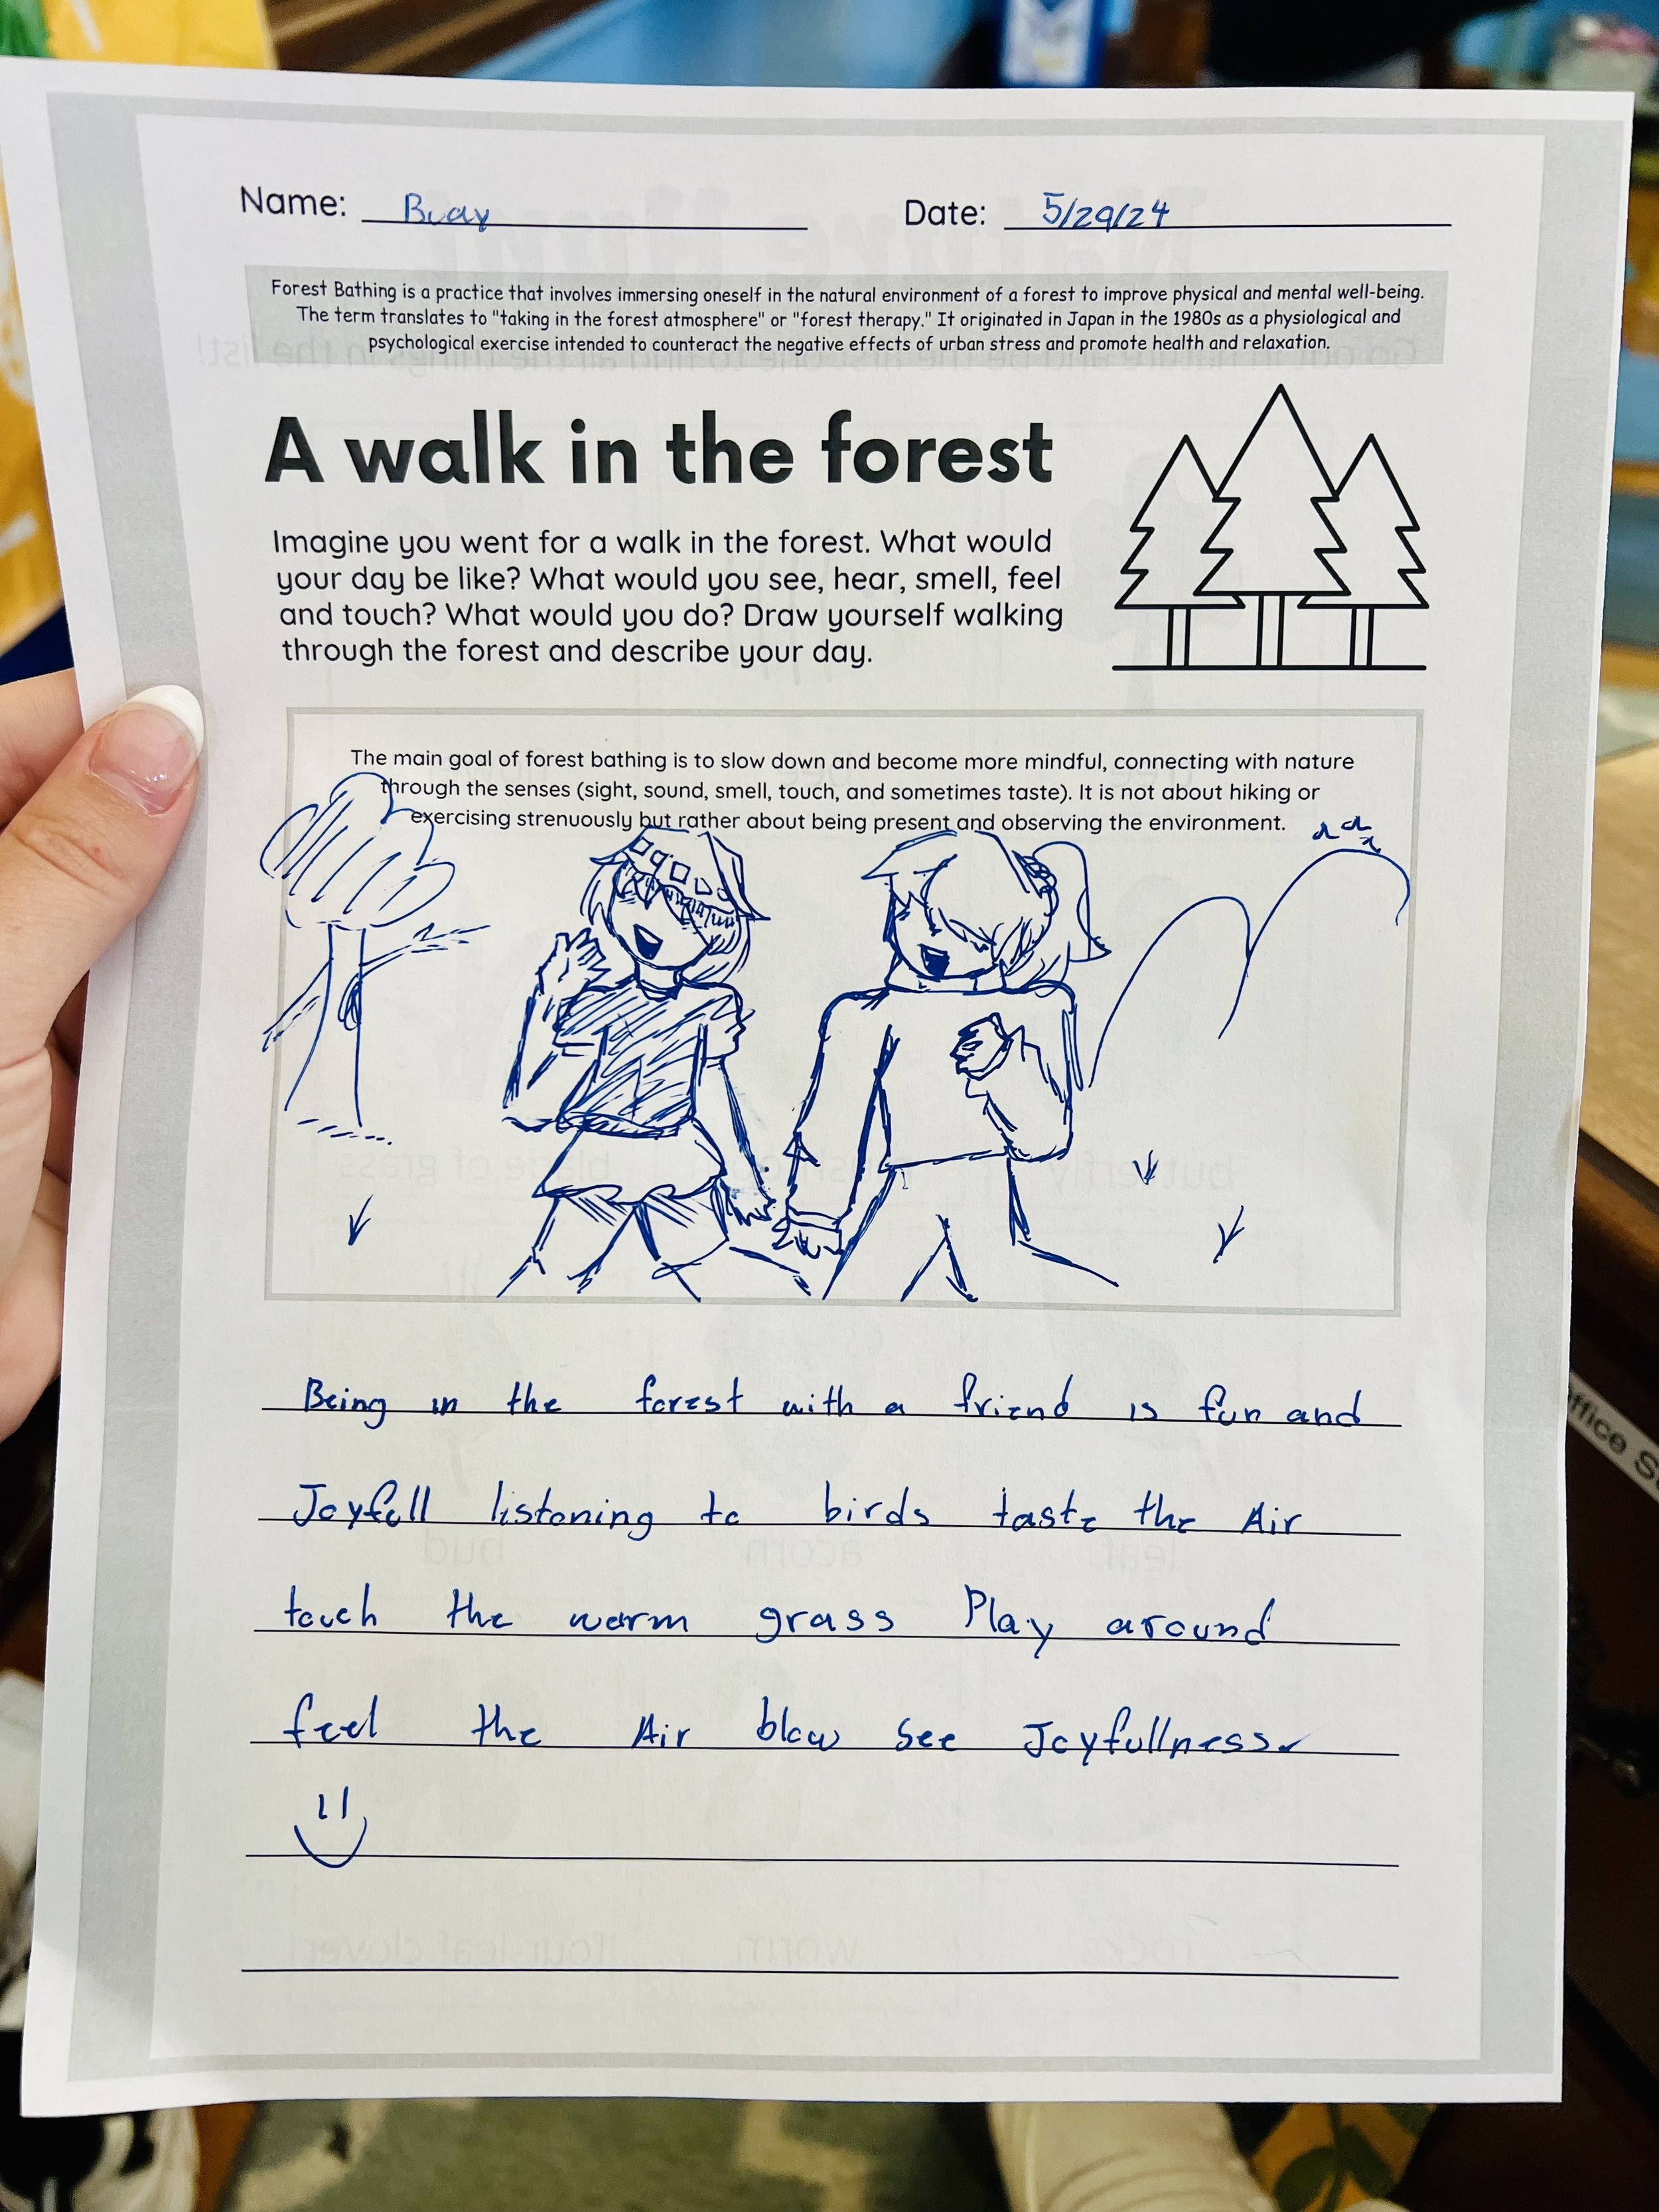 Name: Buay Date: 5/29/24
Forest Bathing is a practice that involves immersing oneself in the natural environment of a forest to improve physical and mental well-being.
The term translates to "taking in the forest atmosphere" or "forest therapy." It originated in Japan in the 1980s as a physiological and
psychological exercise intended to counteract the negative effects of urban stress and promote health and relaxation.
A walk in the forest
Imagine you went for a walk in the forest. What would
your day be like? What would you see, hear, smell, feel
and touch? What would you do? Draw yourself walking
through the forest and describe your day.
The main goal of forest bathing is to slow down and become more mindful, connecting with nature
through the senses (sight, sound, smell, touch, and sometimes taste). It is not about hiking or
exercising strenuously but rather about being present and observing the environment.
Being in the forest with a friend is fun and
Joyfull listoning to birds taste the Air
touch the warm grass Play around
feel the Air blow see Joyfullness.
ffice S